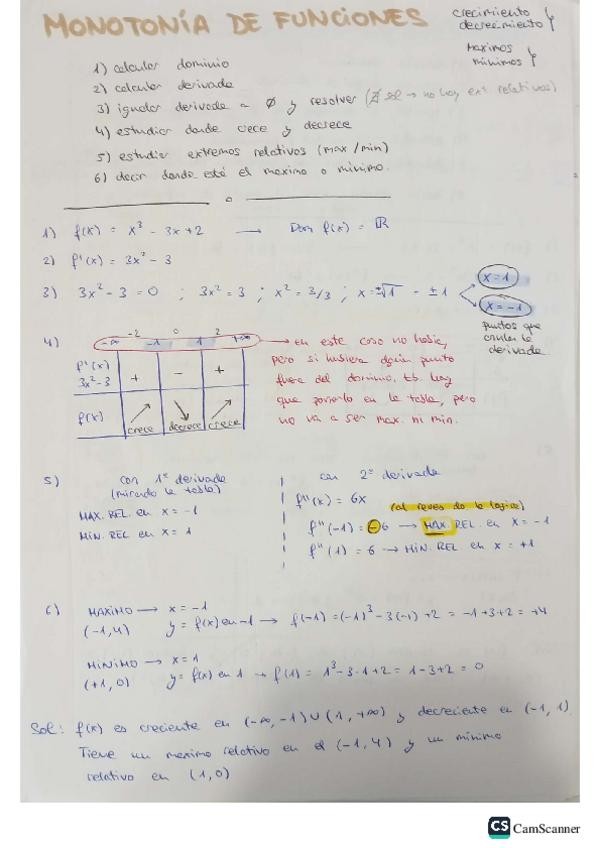 MONOTONÍA DE FUNCIONES
crecimiento
decrecimiento
maximos
minimos
1) calcular dominio
2) calcular derivada
3) igualar derivada a 0 y resolver (∄ sol → no hay ext relativos)
4) estudiar donde crece y decrece
5) estudiar extremos relativos (max/min)
6) decir donde está el maximo o minimo.
1) f(x) = x³ - 3x + 2 → Dom f(x) = ℝ
2) f'(x) = 3x² - 3
3) 3x² - 3 = 0 ; 3x² = 3 ; x² = 3/3 ; x = ±√1 = ±1
x = 1
x = -1
puntos que
anulan la
derivada
4)
-2 0 2
-∞ -1 1 +∞
f'(x)
3x²-3 + - +
f(x) crece decrece crece
→ en este caso no había,
pero si hubiera algún punto
fuera del dominio, tb. hay
que ponerlo en la tabla, pero
no va a ser max. ni min.
5) con 1º derivada
(mirando la tabla)
MAX. REL. en x = -1
MIN. REL en x = 1
con 2º derivada
f''(x) = 6x
(al reves de la logica)
f''(-1) = -6 → MAX. REL. en x = -1
f''(1) = 6 → MIN. REL en x = +1
6) MAXIMO → x = -1
(-1,4) y = f(x) en -1 → f(-1) = (-1)³ - 3(-1) + 2 = -1+3+2 = +4
MINIMO → x = 1
(+1, 0) y = f(x) en 1 → f(1) = 1³ - 3·1 + 2 = 1-3+2 = 0
Sol: f(x) es creciente en (-∞, -1) ∪ (1, +∞) y decreciente en (-1, 1).
Tiene un maximo relativo en el (-1, 4) y un mínimo
relativo en (1, 0)
CS CamScanner